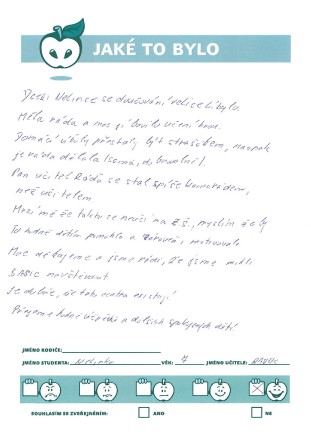 JAKÉ TO BYLO
Dceři Nelince se doučování velice líbilo.
Měla ráda a moc jí bavilo učení hrou.
Domácí úkoly přestaly být strašákem, naopak
je ráda dělala (sama, dobrovolně).
Pan učitel Radů se stal spíše kamarádem,
než učitelem.
Mrzí mě že takto se neučí na ZŠ, myslím že by
to hodně dětem pomohlo a zároveň motivovalo.
Moc děkujeme a jsme rádi, že jsme mohli
BASIC navštěvovat.
Je dobře, že tato centra existují!
Přejeme hodně úspěchů a dalších spokojených dětí!
JMÉNO RODIČE:
JMÉNO STUDENTA: Nelinka VĚK: 7 JMÉNO UČITELE:
SOUHLASÍM SE ZVEŘEJNĚNÍM: ANO NE